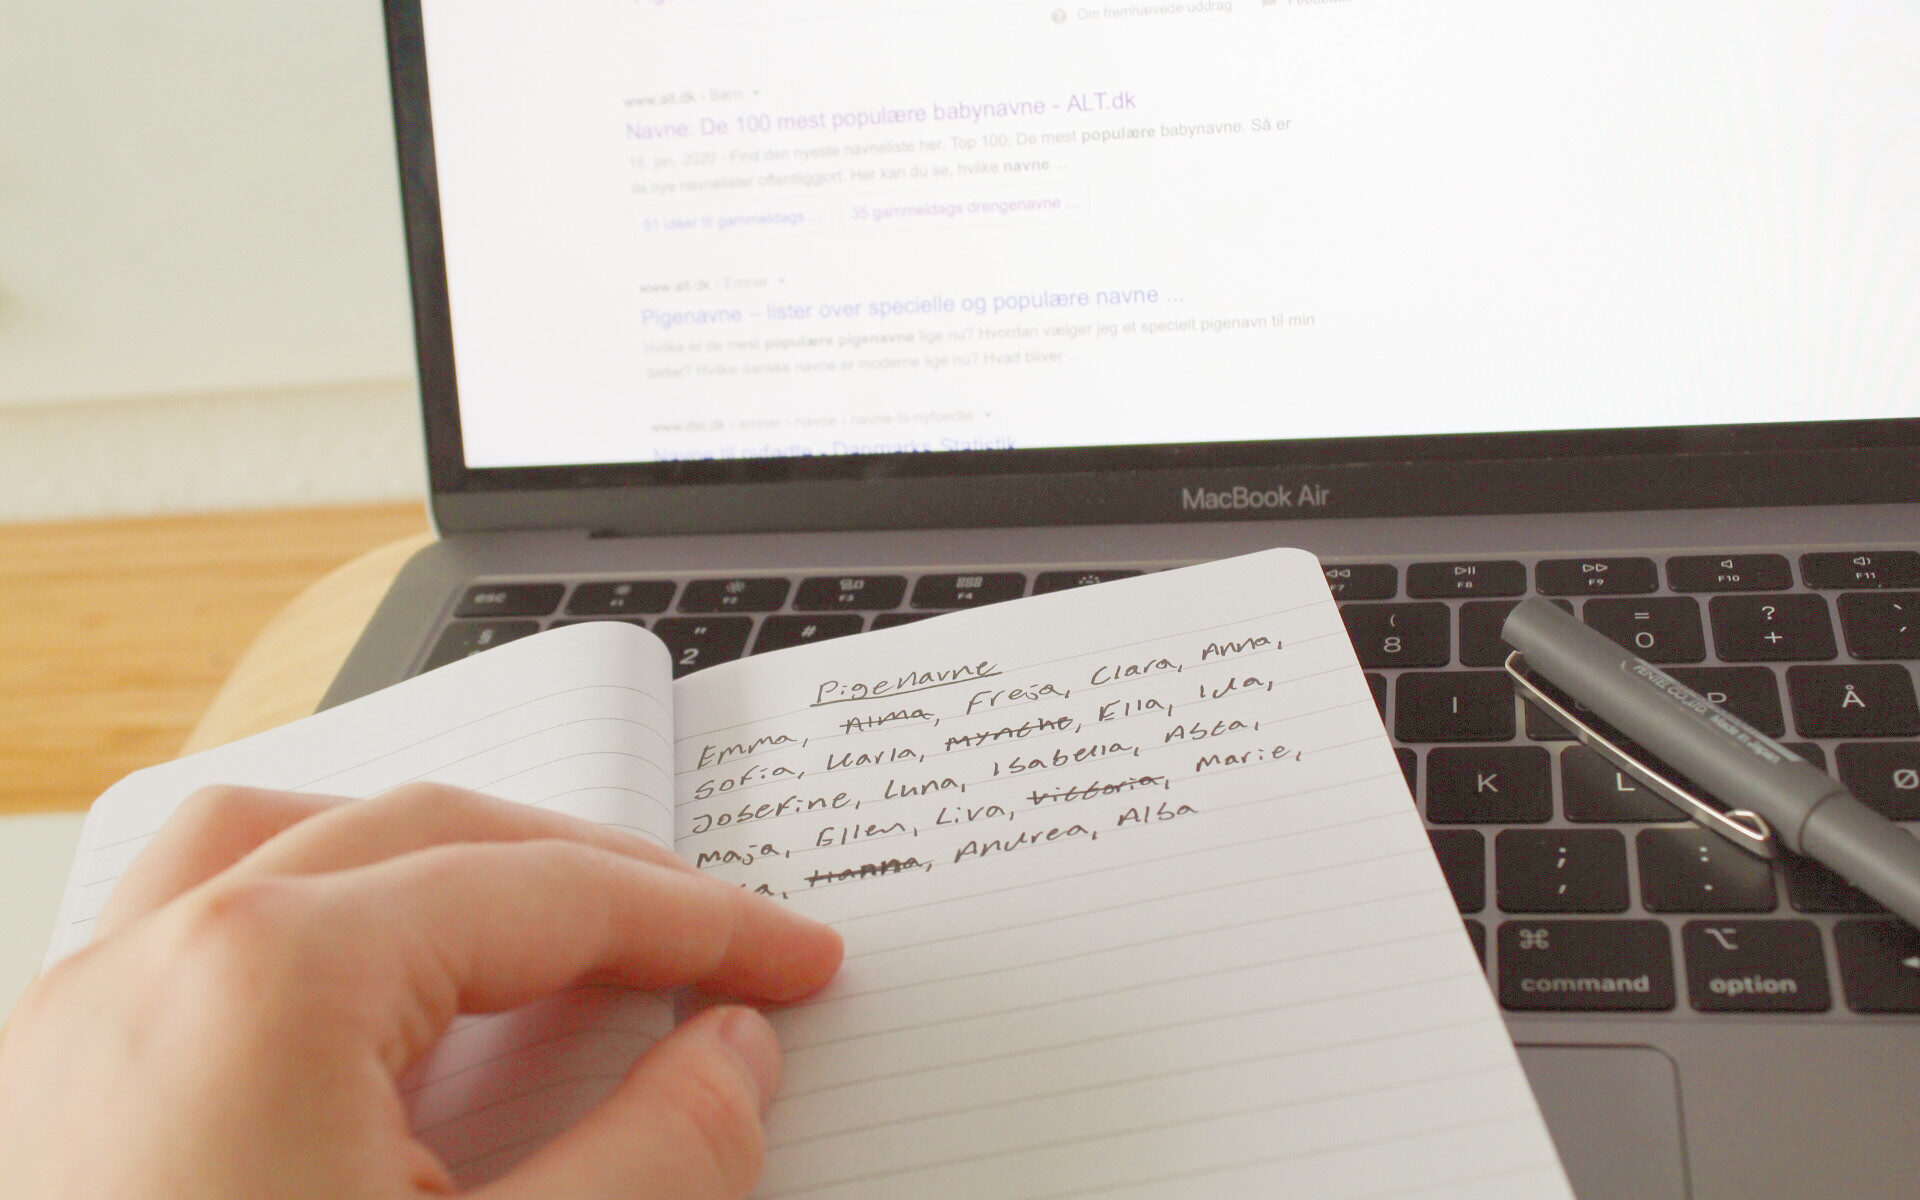 Om fremhævede uddrag
www.alt.dk › Børn
Navne: De 100 mest populære babynavne - ALT.dk
16. jan. 2020 - Find den nyeste navneliste her: Top 100: De mest populære babynavne. Så er
de nye navnelister offentliggjort. Her kan du se, hvilke navne ...
51 idéer til gammeldags ...
35 gammeldags drengenavne ...
www.alt.dk › Emner
Pigenavne – lister over specielle og populære navne ...
Hvilke er de mest populære pigenavne lige nu? Hvordan vælger jeg et specielt pigenavn til min
datter? Hvilke danske navne er moderne lige nu? Hvad bliver ...
www.dst.dk › emner › navne › navne-til-nyfoedte
Navne til nyfødte - Danmarks Statistik
MacBook Air
esc F1 F2 F3 F4 F7 F8 F9 F10 F11
§ " 2 # ( 8 = 0 ? + `
I P Å
K L Ø
; , : .
⌘ command ⌥ option
PENTEL CO., LTD. Made in Japan
Pigenavne
Emma, Alma, Freja, Clara, Anna,
Sofia, Karla, Mynthe, Ella, Ida,
Josefine, Luna, Isabella, Asta,
Maja, Ellen, Liva, Victoria, Marie,
Hanna, Andrea, Alba